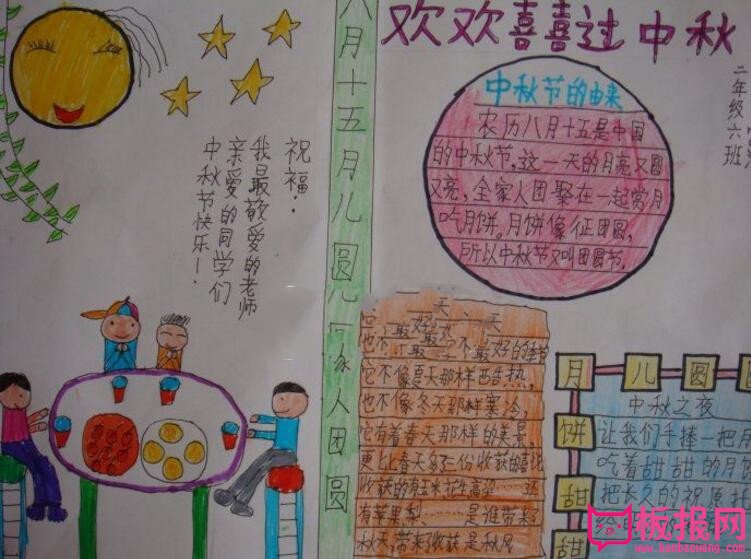 欢欢喜喜过中秋
二年级六班
八月十五月儿圆儿一家人团圆
祝福：
我最敬爱的老师
亲爱的同学们
中秋节快乐！
中秋节的由来
农历八月十五是中国
的中秋节，这一天的月亮又圆
又亮，全家人团聚在一起赏月
吃月饼。月饼像征团圆，
所以中秋节又叫团圆节。
它不像夏天那样酷热，
也不像冬天那样寒冷，
它有着春天那样的美景，
更比春天多一份收获的喜悦
有苹果梨……是谁带来
月儿圆
饼
甜
甜
中秋之夜
让我们手捧一把月
吃着甜甜的月饼
把长久的祝愿
板报网
www.banbaowang.com